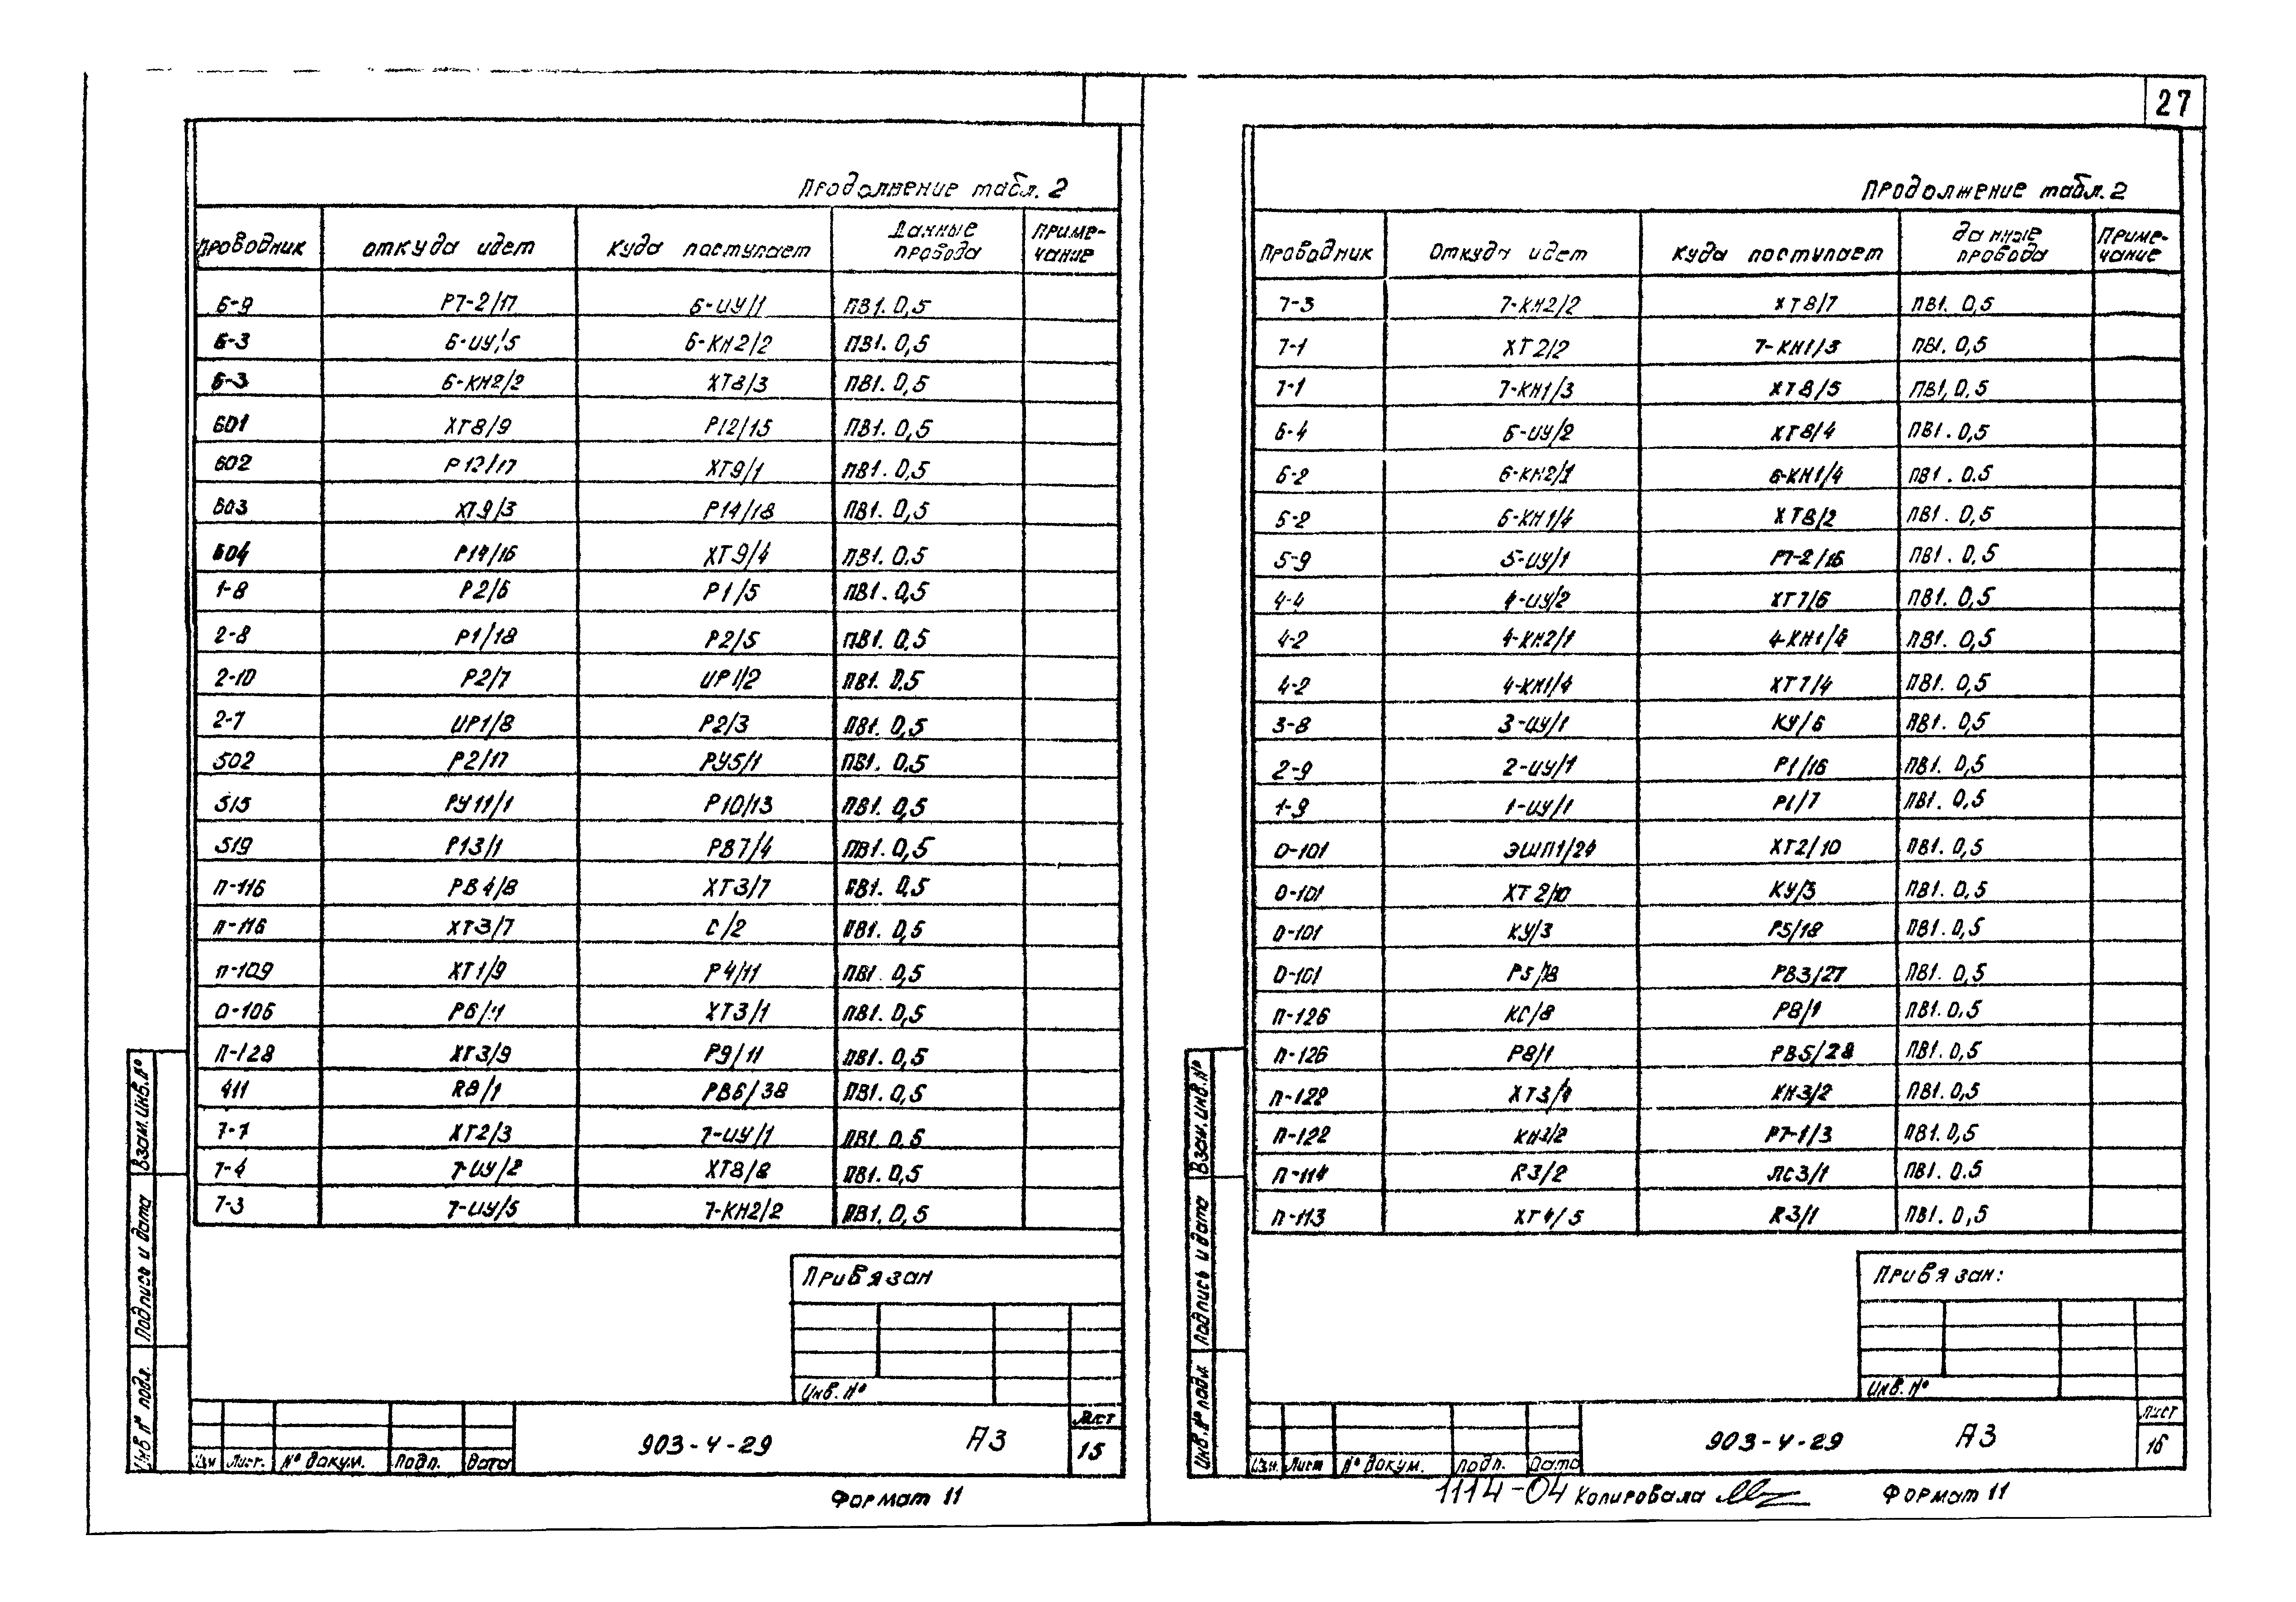 27
Продолжение табл. 2
Проводник откуда идет куда поступает Данные провода Примечание
6-9 Р7-2/17 6-ИУ/1 ПВ1. 0,5
6-3 6-ИУ/5 6-КН2/2 ПВ1. 0,5
6-3 6-КН2/2 ХТ8/3 ПВ1. 0,5
601 ХТ8/9 Р12/15 ПВ1. 0,5
602 Р12/17 ХТ9/1 ПВ1. 0,5
603 ХТ9/3 Р14/18 ПВ1. 0,5
604 Р14/16 ХТ9/4 ПВ1. 0,5
1-8 Р2/6 Р1/5 ПВ1. 0,5
2-8 Р1/18 Р2/5 ПВ1. 0,5
2-10 Р2/7 ИР1/2 ПВ1. 0,5
2-7 ИР1/8 Р2/3 ПВ1. 0,5
502 Р2/17 РУ5/1 ПВ1. 0,5
515 РУ11/1 Р10/13 ПВ1. 0,5
519 Р13/1 РВ7/4 ПВ1. 0,5
П-116 РВ4/8 ХТ3/7 ПВ1. 0,5
П-116 ХТ3/7 С/2 ПВ1. 0,5
П-109 ХТ1/9 Р4/11 ПВ1. 0,5
О-106 Р6/11 ХТ3/1 ПВ1. 0,5
П-128 ХТ3/9 Р9/11 ПВ1. 0,5
411 R8/1 РВ6/38 ПВ1. 0,5
7-7 ХТ2/3 7-ИУ/1 ПВ1. 0,5
7-4 7-ИУ/2 ХТ8/8 ПВ1. 0,5
7-3 7-ИУ/5 7-КН2/2 ПВ1. 0,5
Привязан
Инв. №
Изм Лист. № докум. Подп. Дата
903-4-29 А3
Лист
15
Формат 11
Инв № подл. Подпись и дата Взам. инв. №
Продолжение табл. 2
Проводник Откуда идет Куда поступает Данные провода Примечание
7-3 7-КН2/2 ХТ8/7 ПВ1. 0,5
7-1 ХТ2/2 7-КН1/3 ПВ1. 0,5
7-1 7-КН1/3 ХТ8/5 ПВ1, 0,5
6-4 6-ИУ/2 ХТ8/4 ПВ1. 0,5
6-2 6-КН2/1 6-КН1/4 ПВ1. 0.5
6-2 6-КН1/4 ХТ8/2 ПВ1. 0,5
5-9 5-ИУ/1 Р7-2/16 ПВ1. 0,5
4-4 4-ИУ/2 ХТ7/6 ПВ1. 0,5
4-2 4-КН2/1 4-КН1/4 ПВ1. 0,5
4-2 4-КН1/4 ХТ7/4 ПВ1. 0,5
3-8 3-ИУ/1 КУ/6 ПВ1. 0,5
2-9 2-ИУ/1 Р1/16 ПВ1. 0,5
1-9 1-ИУ/1 Р1/7 ПВ1. 0,5
О-101 ЭШП1/24 ХТ2/10 ПВ1. 0,5
О-101 ХТ2/10 КУ/3 ПВ1. 0,5
О-101 КУ/3 Р5/18 ПВ1. 0,5
О-101 Р5/18 РВ3/27 ПВ1. 0,5
П-126 КС/8 Р8/1 ПВ1. 0,5
П-126 Р8/1 РВ5/28 ПВ1. 0,5
П-122 ХТ3/4 КН3/2 ПВ1. 0,5
П-122 КН3/2 Р7-1/3 ПВ1. 0,5
П-114 R3/2 ЛС3/1 ПВ1. 0.5
П-113 ХТ4/5 R3/1 ПВ1. 0,5
Привязан:
Инв. №
Изм. Лист № докум. подп. Дата
903-4-29 А3
Лист
16
1114-04 Копировала Формат 11
Инв. № подл. Подпись и дата Взам. инв. №